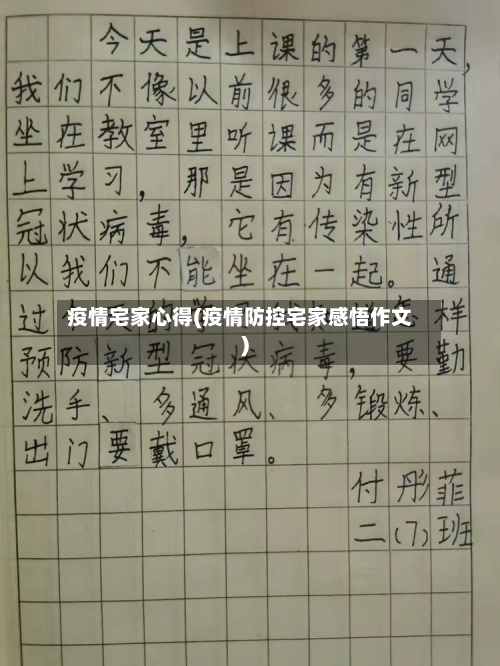 今天是上课的第一天，
我们不像以前很多的同学
坐在教室里听课而是在网
上学习，那是因为有新型
冠状病毒，它有传染性所
以我们不能坐在一起。通
过
疫情宅家心得(疫情防控宅家感悟作文
)
样
预防新型冠状病毒，要勤
洗手、多通风、多锻炼、
出门要戴口罩。
付彤菲
二(7)班